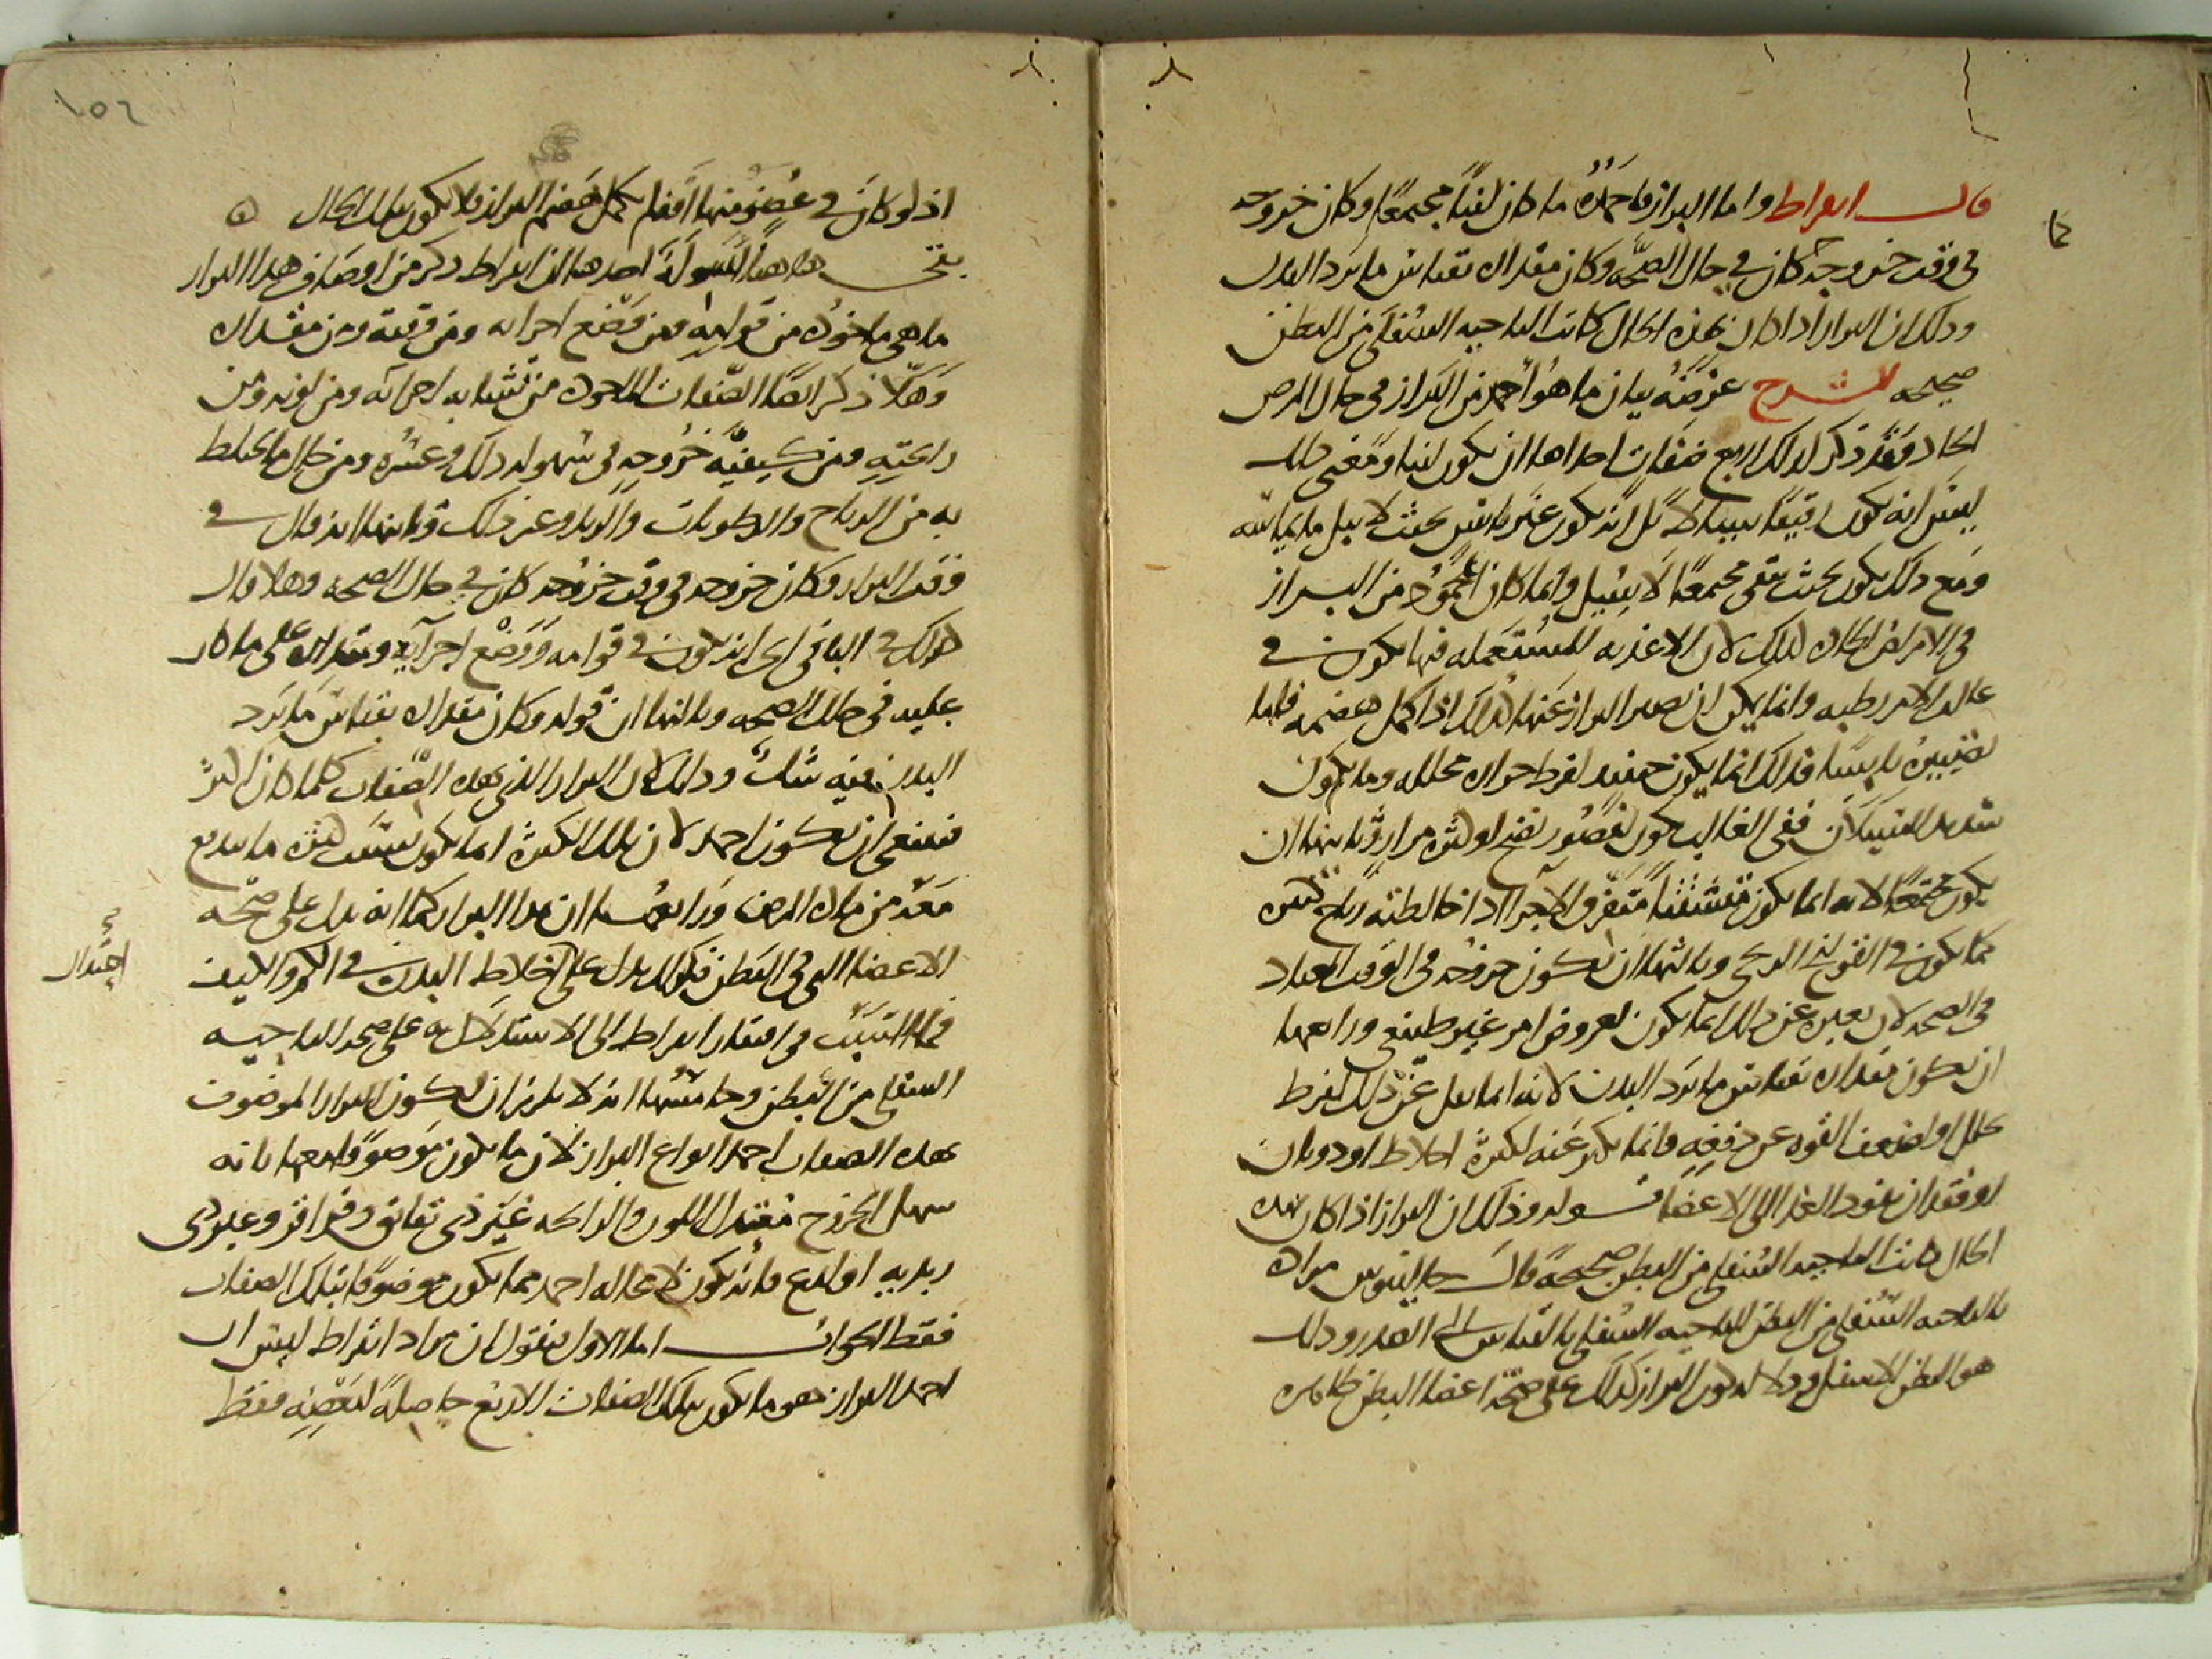 قال ابقراط واما البراز فاحمده ما كان لينا مجتمعا وكان خروجه
في وقت خروجه كان في حال الصحة وكان مقداره بقياس ما يرد البدن
وذلك ان البراز اذا كان بهذه الحال كانت الناحية السفلى من البطن
صحيحه الشرح غرضه بيان ما هو احمد من البراز في حال المرض
الحاد وقد ذكر لذلك اربع صفات احداها ان يكون لينا ومعنى ذلك
ليس انه يكون رقيقا سيالا بل انه يكون غير يابس بحيث لا
ومع ذلك يكون بحيث يبقى مجتمعا لا يسيل وانما كان المحمود من البراز
في الامراض الحاده لذلك لان الاغذيه المستعمله فيها يكون في
غالب الامر رطبه وانما يمكن ان يصير البراز عنها كذلك اذا كمل هضمه فاما
يابسا فذلك انما يكون حينئذ لفرط حراره محلله وما يكون
شديد السيلان ففي الغالب يكون لقصور نضج او كثره مرار وثانيها ان
يكون مجتمعا لانه انما يكون متشتتا متفرق الاجزاء اذا خالطته رياح كثيره
كما يكون في القولنج الريحي وثالثها ان يكون خروجه في الوقت المعتاد
في الصحه لان تغيره عن ذلك انما يكون لعروض امر غير طبيعي ورابعها
ان يكون مقداره بقياس ما يرد البدن لانه انما يقل عن ذلك لفرط
تحلل او لضعف القوه عن دفعه وانما يكثر عنه لكثرة اخلاط او ذوبان
او فقدان نفود الغذا الى الاعضا قوله وذلك ان البراز اذا كان بهذه
الحال كانت الناحيه السفلى من البطن صحيحة قال جالينوس مراده
بالناحيه السفلى من البطن الناحيه السفلى بالقياس الى الصدر وذلك
هو البطن الاسفل ودلاله كون البراز كذلك على صحة اعضا البطن ظاهره
كا
اذ لو كان في عضو منها آفة لم يكمل هضم البراز فلا يكون بتلك الحال
بحث هاهنا اسولة احدها ان ابقراط ذكر من اوصاف هذا البراز
ما هي ماخوذه من قوامه ومن وضع اجزائه ومن وقته ومن مقداره
وهلا ذكر ايضا الصفات الماخوذه من تشابه اجزائه ومن لونه ومن
رائحته ومن كيفية خروجه في سهولة ذلك وعسره ومن حال ما يختلط
به من الرياح والرطوبات والزبد وغير ذلك وثانيها انه قال في
وقت البراز وكان خروجه في وقت خروجه كان في حال الصحه وهلا قال
كذلك في الباقي اي انه يكون في قوامه ووضع اجزائه ومقداره على ما كان
عليه في حال الصحه وثالثها ان قوله وكان مقداره بقياس ما يرد
البدن فيه شك وذلك لان البراز الذي بهذه الصفات كلما كان اكثر
فينبغي ان يكون احمد لان تلك الكثره انما يكون بسبب كثره ما يندفع
معه من مادة المرض ورابعها ان هذا البراز كما انه يدل على صحة
الاعضا التي في البطن فكذلك يدل على اخلاط البدن في الكم والكيف
فما السبب في اقتصار ابقراط الى الاستدلال به على صحة الناحيه
السفلى من البطن وخامسها انه لا يلزم ان يكون البراز الموصوف
بهذه الصفات احمد انواع البراز لان ما يكون موصوفا معها بانه
سهل الخروج معتدل اللون والرائحه غير ذي بقابق وقراقر وغير ذي
زبديه او لذع فانه يكون لا محاله احمد مما يكون موصوفا بتلك الصفات
فقط الجواب اما الاول فنقول ان مراد ابقراط ليس ان
احمد البراز هو ما يكون بتلك الصفات الاربع حاصلة لبعضه فقط